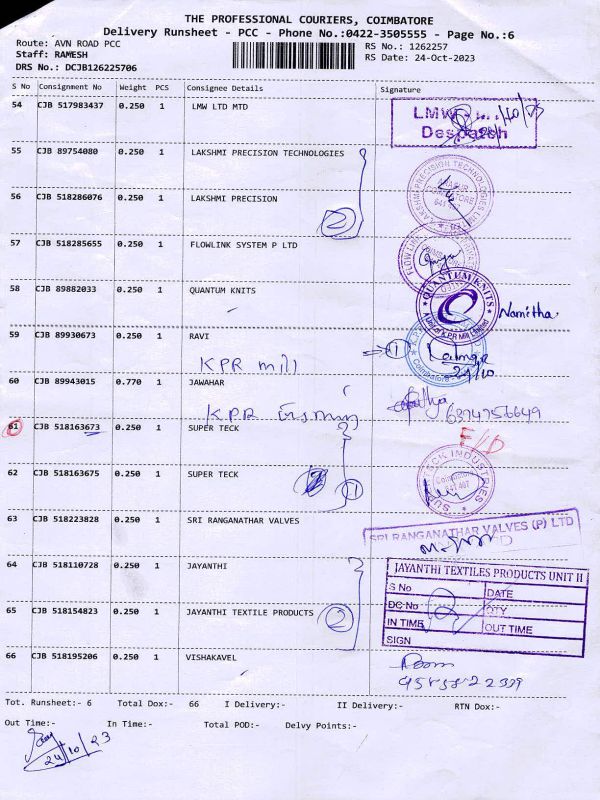 THE PROFESSIONAL COURIERS, COIMBATORE
Delivery Runsheet - PCC - Phone No.:0422-3505555 - Page No.:6
Route: AVN ROAD PCC
RS No.: 1262257
Staff: RAMESH
RS Date: 24-Oct-2023
DRS No.: DCJB126225706
S No Consignment No Weight PCS Consignee Details Signature
54 CJB 517983437 0.250 1 LMW LTD MTD
LMW
Despatch
55 CJB 89754080 0.250 1 LAKSHMI PRECISION TECHNOLOGIES
56 CJB 518286076 0.250 1 LAKSHMI PRECISION
2
LAKSHMI PRECISION TECHNOLOGIES
COIMBATORE
641 407
57 CJB 518285655 0.250 1 FLOWLINK SYSTEM P LTD
FLOW LINK
58 CJB 89882033 0.250 1 QUANTUM KNITS
QUANTUM KNITS
A Unit of K.P.R Mill Limited
Namitha
59 CJB 89930673 0.250 1 RAVI
KPR mill
1
Coimbatore
24/10
60 CJB 89943015 0.770 1 JAWAHAR
KPR
6374756649
61 CJB 518163673 0.250 1 SUPER TECK
F/D
62 CJB 518163675 0.250 1 SUPER TECK
1
TECK INDUSTRIES
Coimbatore
641 407
63 CJB 518223828 0.250 1 SRI RANGANATHAR VALVES
SRI RANGANATHAR VALVES (P) LTD
64 CJB 518110728 0.250 1 JAYANTHI
65 CJB 518154823 0.250 1 JAYANTHI TEXTILE PRODUCTS
2
JAYANTHI TEXTILES PRODUCTS UNIT II
S No DATE
DC No QTY
IN TIME OUT TIME
SIGN
66 CJB 518195206 0.250 1 VISHAKAVEL
Tot. Runsheet:- 6 Total Dox:- 66 I Delivery:- II Delivery:- RTN Dox:-
Out Time:- In Time:- Total POD:- Delvy Points:-
24/10/23